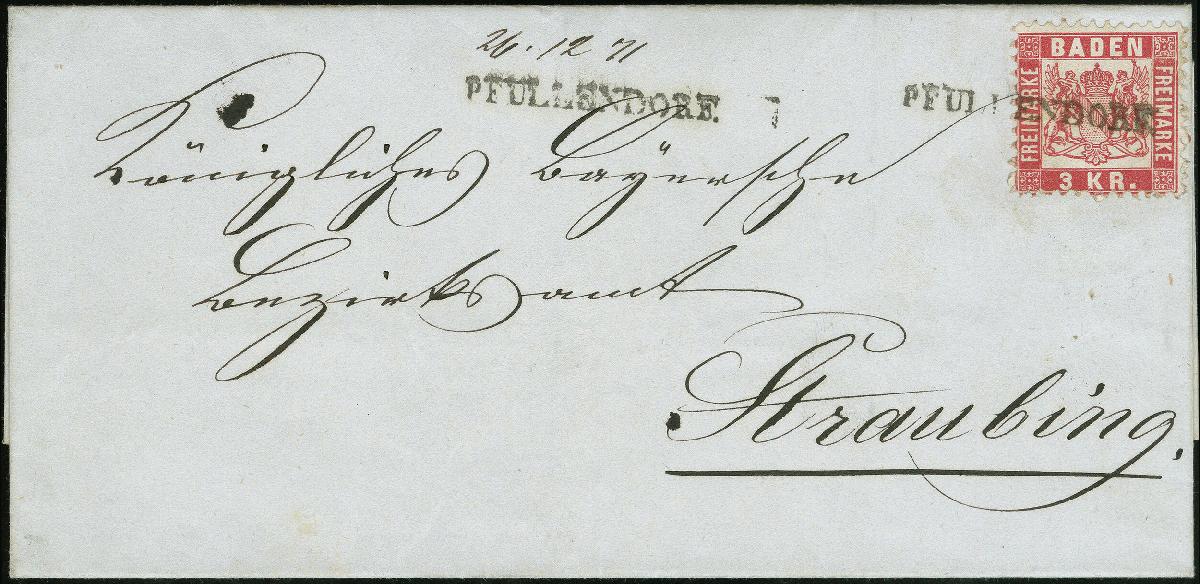 26. 12 71
PFULLENDORF.
PFULLENDORF.
BADEN
FREIMARKE
FREIMARKE
3 KR.
Königliches Bayersche
Bezirksamt
Straubing.